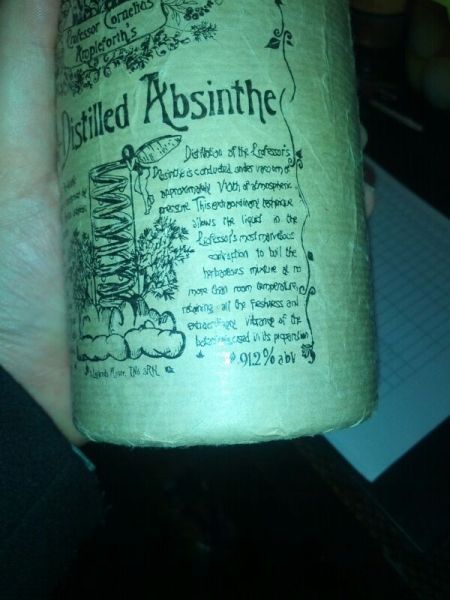 Professor Cornelius
Ampleforth's
Distilled Absinthe
Distillation of the Professor's
Absinthe is conducted under vacuum of
approximately of atmospheric
pressure. This extraordinary technique
allows the liquid in the
Professor's most marvellous
contraption to boil the
herbaceous mixture at no
more than room temperature,
retaining all the freshness and
extraordinary vibrance of the
botanicals used in its preparation
91.2% abv